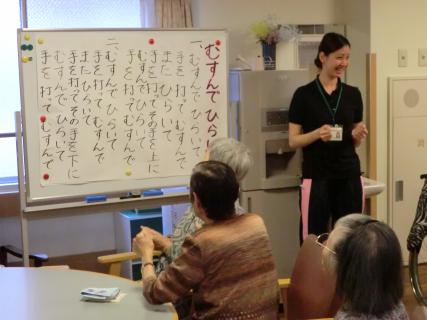 むすんで ひら
一、むすんで ひらいて
手を 打って むすんで
また ひらいて
手を打って その手を上に
むすんで ひらいて
手を 打って むすんで
二、むすんで ひらいて
手を 打って むすんで
また ひらいて
手を打って その手を下に
むすんで ひらいて
手を 打って むすんで